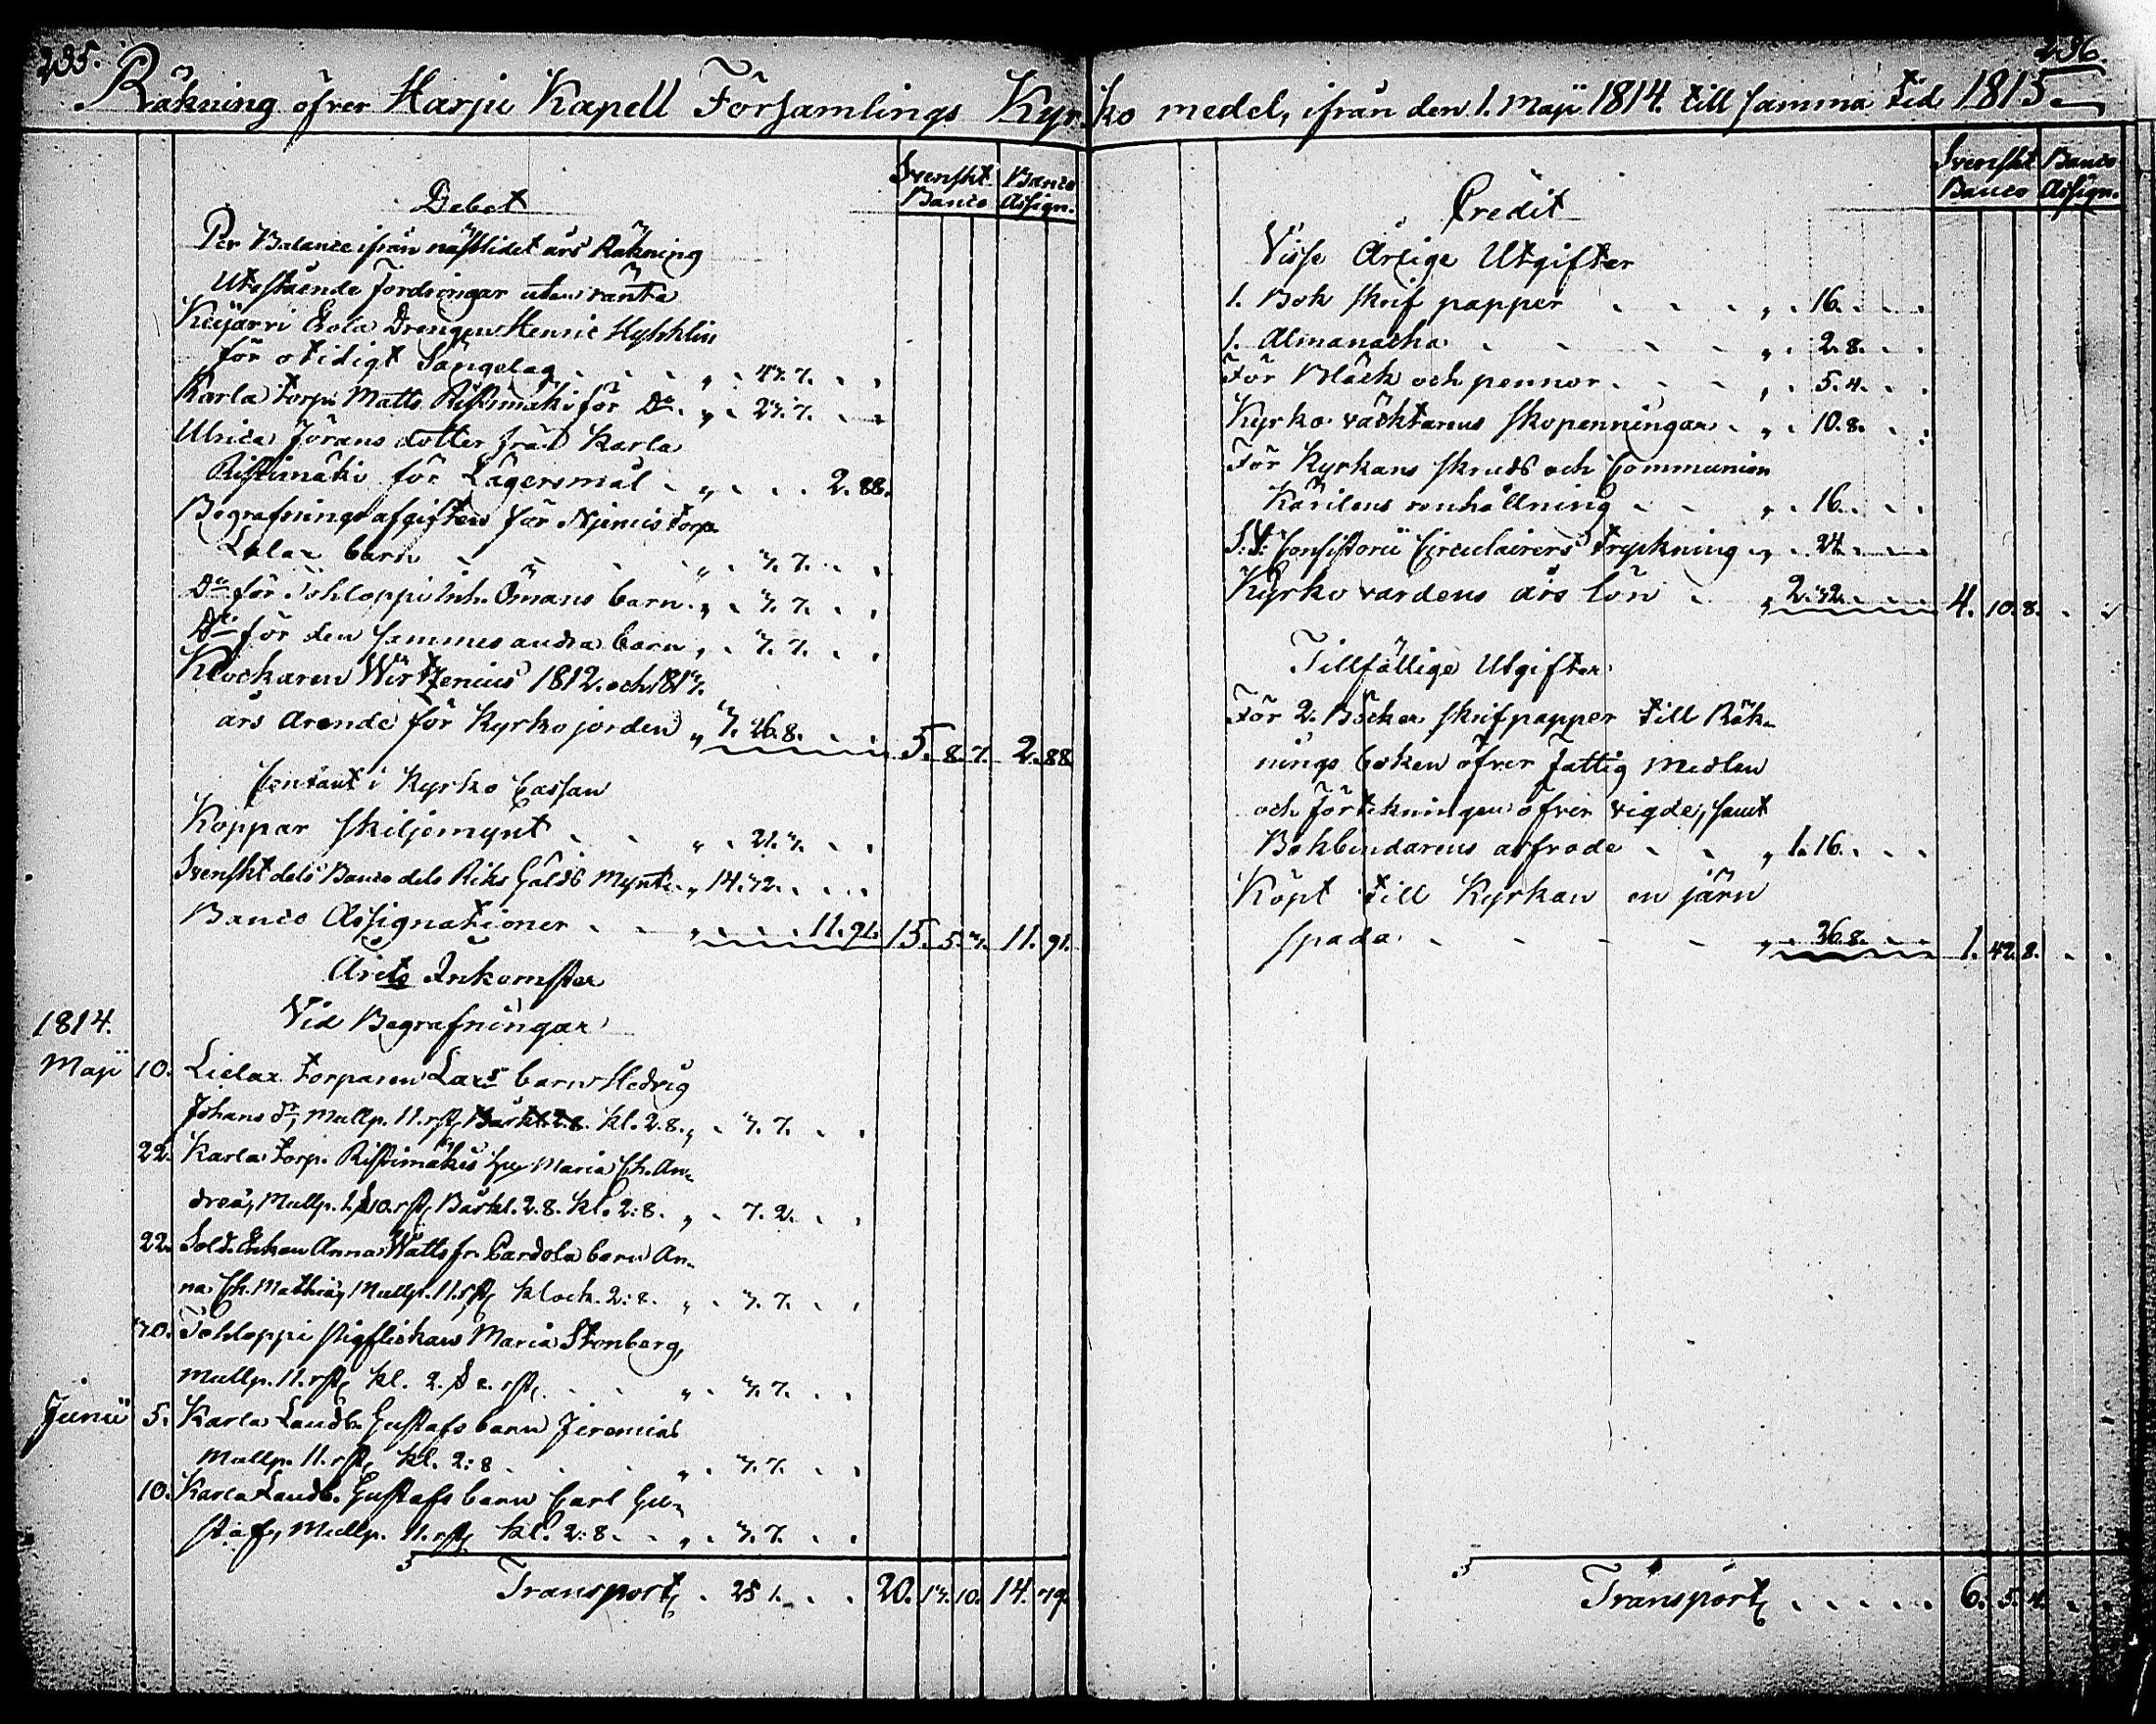 235.
Räkning öfver Harju Kapell Församlings Kyr
Svenskt Banco
Banco Assign.
Debet
Per Balance ifrån nästlidet års Räkning
Utestående Fordringar utan ränta
Drengen Henric
för otidigt Sängelag " 43. 7.
Karla Torp. Matts Ristimäki för Do " 23. 7.
Ulrica Jörans dotter från Karla
Ristimäki för Lägersmål " 2. 88.
Begrafningsafgiften för Torp.
barn " 3. 7.
Do för Tohloppi Inh. Ömans barn " 3. 7.
Do för den sammes andra barn " 3. 7.
Klockaren Wirtzenius 1812. och 1813.
års Arende för Kyrkojorden " 3. 26. 8. 5. 8. 7. 2. 88.
Contant i Kyrko Cassan
Koppar skiljemynt " 21. 3.
Svenskt dels Banco dels Riks Gälds Mynt " 14. 32.
Banco Assignationer " 11. 91. 15. 5. 3. 11. 91.
Årets Inkomster
Vid Begrafningar
1814.
Maji 10. Lielax Torparen Lars barn Hedvig
Johans dr, Mullp. 11. rst, kl. 2. 8. " 3. 7.
22. Karla Torp. Ristimäkis Maria Ch. An-
dreä, Mullp. Bårkl. 2. 8. kl. 2: 8. " 7. 2.
22. Sold. Enkan Anna Watts fr. Pardola barn An-
na Ch. Mathiä, Mullp. 11. rst, klock. 2: 8. " 3. 7.
30. Tohloppi Maria Stenberg,
Mullp. 11. rst, kl. 2. s. 8. rst. " 3. 7.
Junii 5. Karla Landb. Gustafs barn Jeremias
Mullp. 11. rst, kl. 2: 8 " 3. 7.
10. Karla Landb. Gustafs barn Carl Gu-
staf, Mullp. 11. rst, kl. 2: 8. " 3. 7.
Transport 25 1. 20. 13. 10. 14. 79.
236.
ko medel, ifrån den 1. Maji 1814. till samma tid 1815.
Svenskt Banco
Banco Assign.
Credit
Visse Årlige Utgifter
1. Bok skrif papper " 16.
1. Almanacha " 2. 8.
För Bläck och pennor " 5. 4.
Kyrko väcktarens skopenningar " 10. 8.
För Kyrkans skrud och Communion
Kärilens renhållning " 16.
S: T: Consistorii Circulairers tryckning " 24.
Kyrko vardens års lön " 2. 32. 4. 10. 8.
Tillfällige Utgifter
För 2. Böcker skrifpapper till Räk-
nings boken öfver Fattig Medlen
och förtekningen öfver vigde, samt
Bokbindarens arfvode " 1. 16.
Köpt till Kyrkan en järn
spada " 26. 8. 1. 42. 8.
Transport 6. 5. 4.